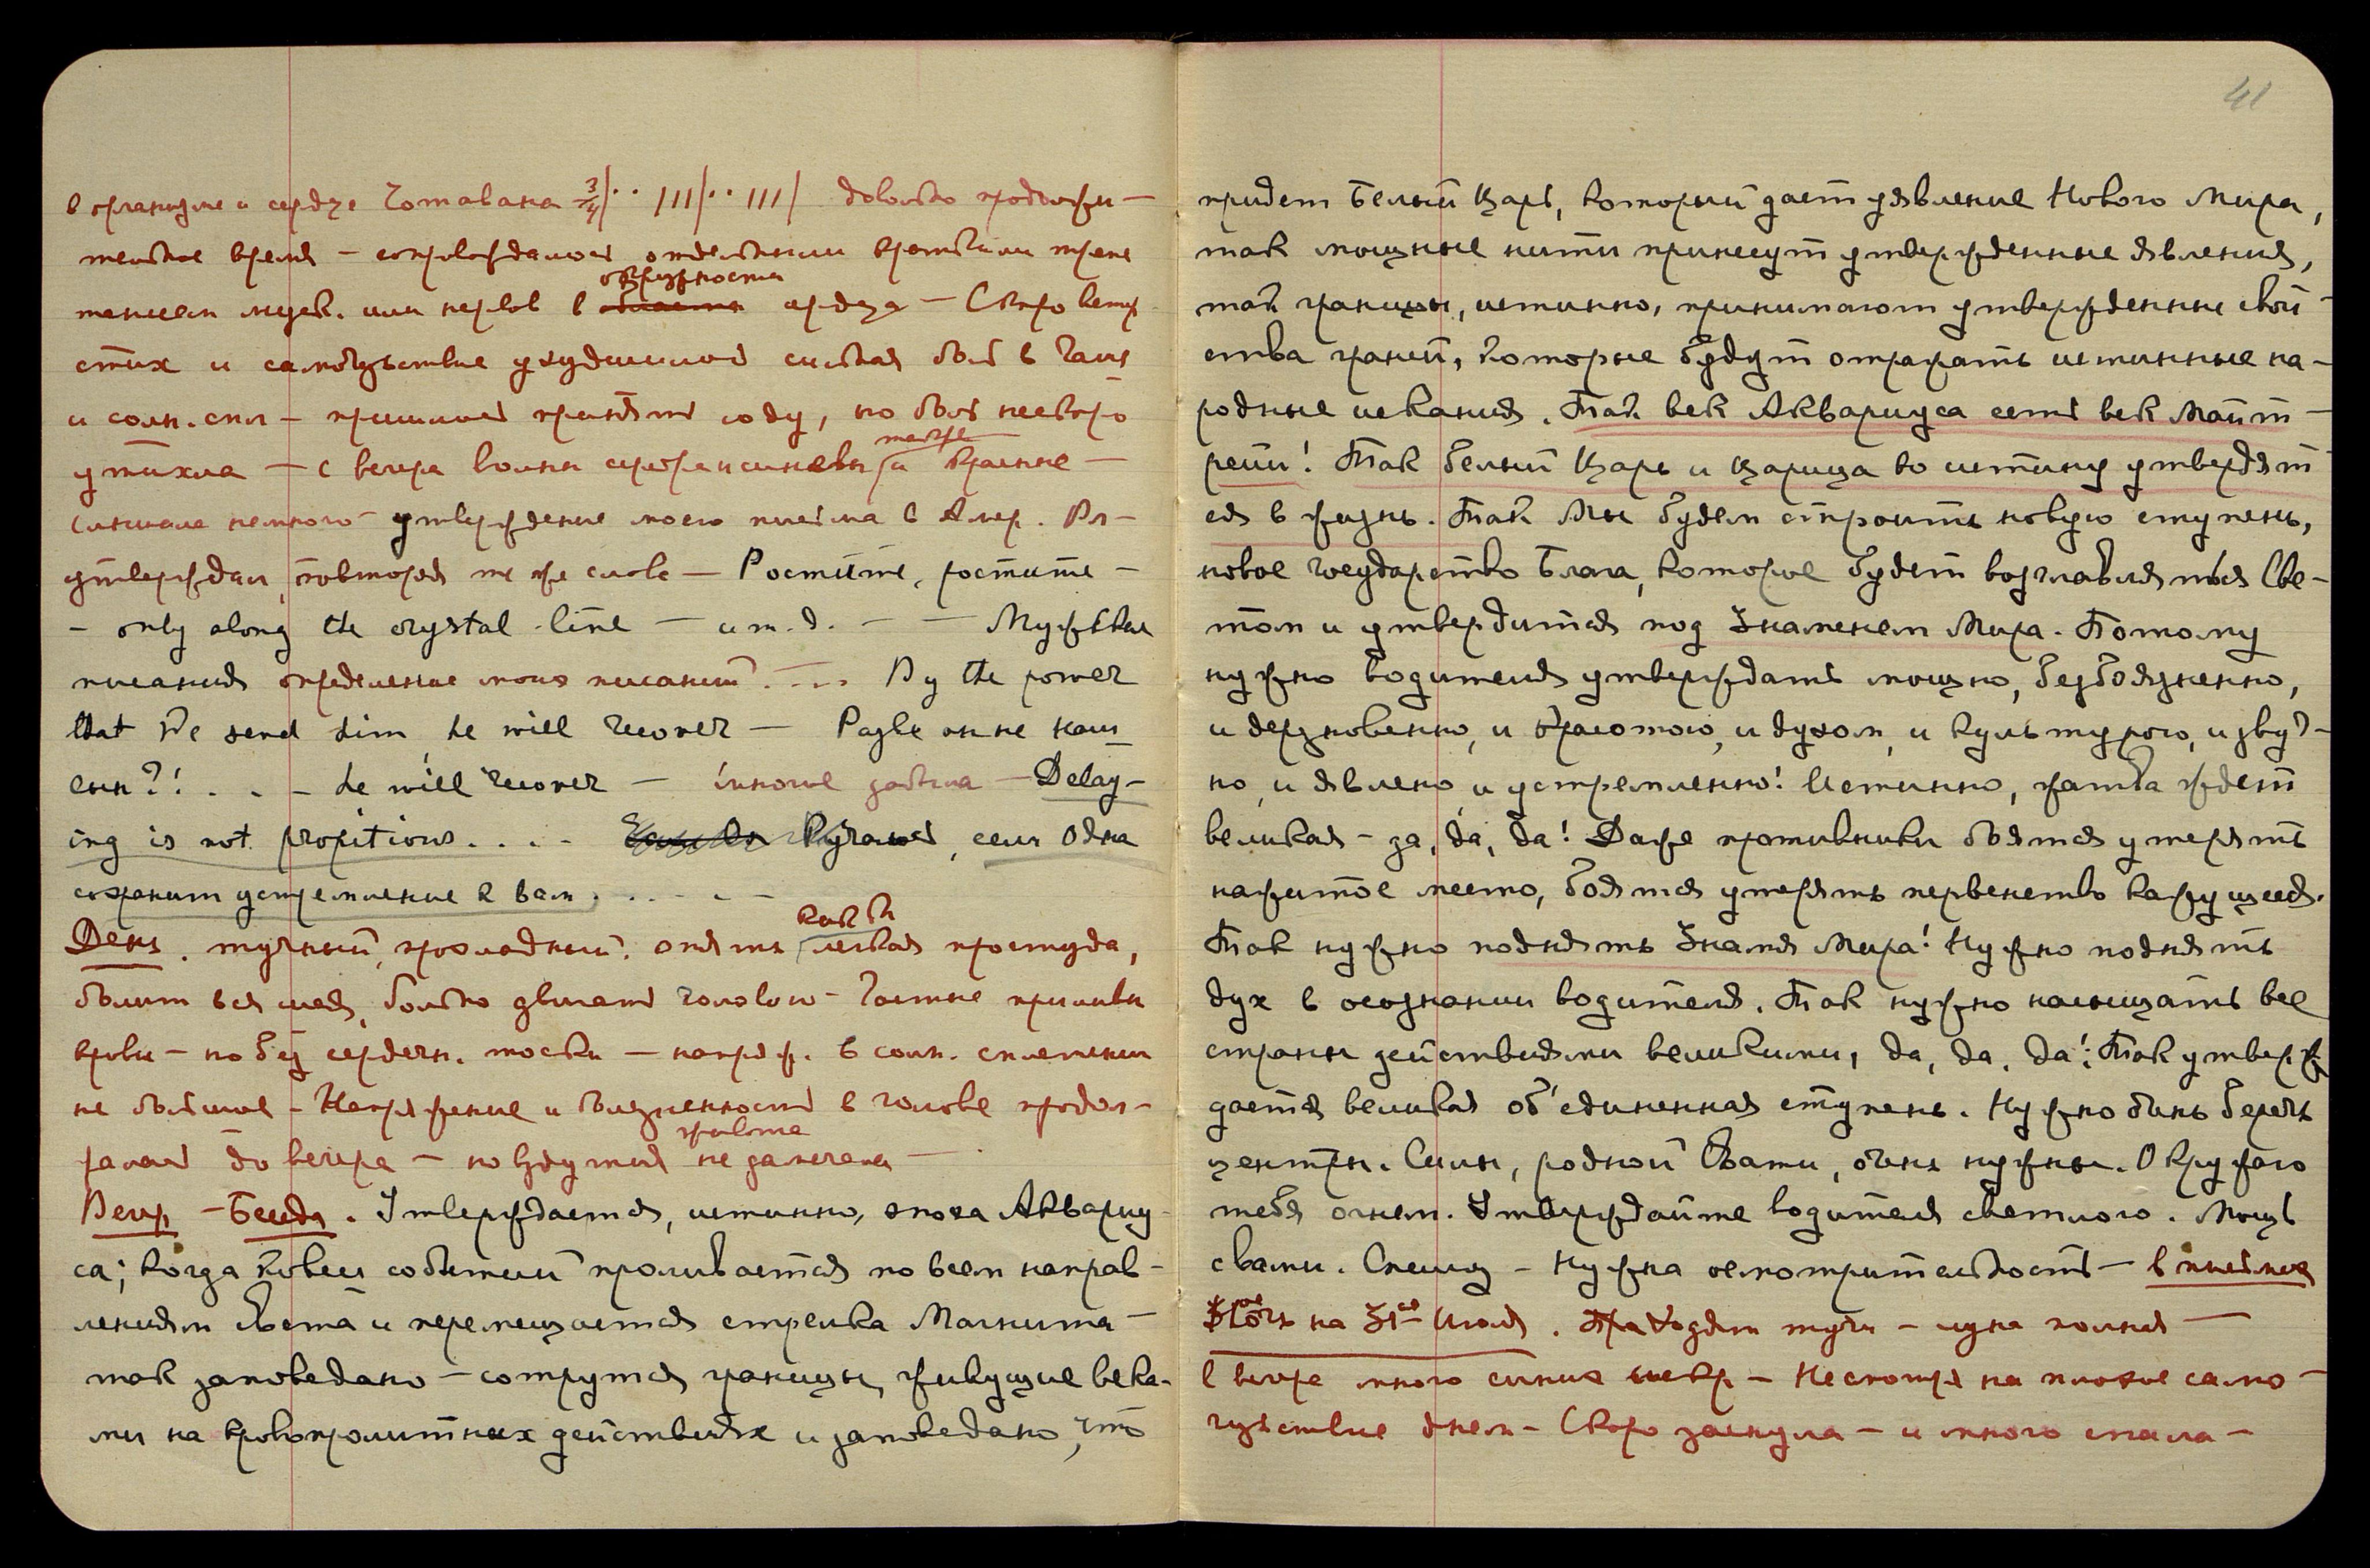 в организме и сердце Чотавана 3/4/·· /||/·· |||/ довольно продолжи–
тельное время – сопровождалось отдельными краткими трепе
танием муск. или нервов в окружности сердца – Скоро ветер
стих и самочувствие ухудшилось сильная боль в чаше
и солн. спл – пришлось принять соду, но боль нескоро
утихла – с вечера волны серебр и синевы / также и красные –
Слышала немного – утверждение моего письма в Амер. Вл–
утверждал, повторяя те же слова – Ростите, ростите –
– only along the crystal line – и т. д. – – Мужские
писания определение моих писаний . – .. By the power
that We send him, he will recover – Разве он не наш
сын?! . . – he will recover – многое забыла – Delay–
ing is not propitious . . . – Ручаюсь, если Одна
сохранит устремление к вам . . . – –
День. тучный, прохладный. опять как бы легкая простуда,
болит вся шея, больно двигать головою – Частые приливы
крови – но без сердечн. тоски – напряж. в солн. сплетении
не большое – Напряжение и болезненность в голове продол–
жалась до вечера – но вздутия живота не замечала –
Вечер – Беседа. Утверждается, истинно, эпоха Аквариу–
са; когда ковш событий проливается по всем направ–
лениям света и перемещается стрелка Магнита –
так заповедано – сотрутся границы, живущие века–
ми на кровопролитных действиях и заповедано, что
41
придет Белый Царь, который дает уявление Нового Мира,
так мощные нити принесут утвержденные явления,
так границы, истинно, принимают утвержденные свой–
ства граней, которые будут отражать истинные на–
родные искания. Так век Аквариуса есть век Майт–
рейи! Так белый Царь и Царица во истину утвердят
ся в жизнь. Так Мы будем строить новую ступень,
новое государство Блага, которое будет возглавляться Све–
том и утвердится под Знаменем Мира. Потому
нужно водителя утверждать мощно, безбоязненно,
и дерзновенно, и красотою, и духом, и культурою, и звуч–
но, и явлено, и устремленно! Истинно, жатва ждет
великая – да, да, да! Даже противники боятся утерять
нажитое место, боятся утерять первенство кажущееся.
Так нужно поднять Знамя Мира! Нужно поднять
дух в осознании водителя. Так нужно насыщать все
страны действиями великими, да, да, да! Так утверж
дается великая об'единенная ступень. Нужно очень беречь
центры. Силы, родной Свати, очень нужны. Окружаю
тебя огнем. Утверждайте водителя светлого. Мощь
с вами. Спешу – Нужна осмотрительность – в письмах
Ночь на 31ое Июля. Проходят тучи – луна полная –
с вечера много синих искр – Несмотря на плохое само–
чувствие днем – Скоро заснула – и много спала –